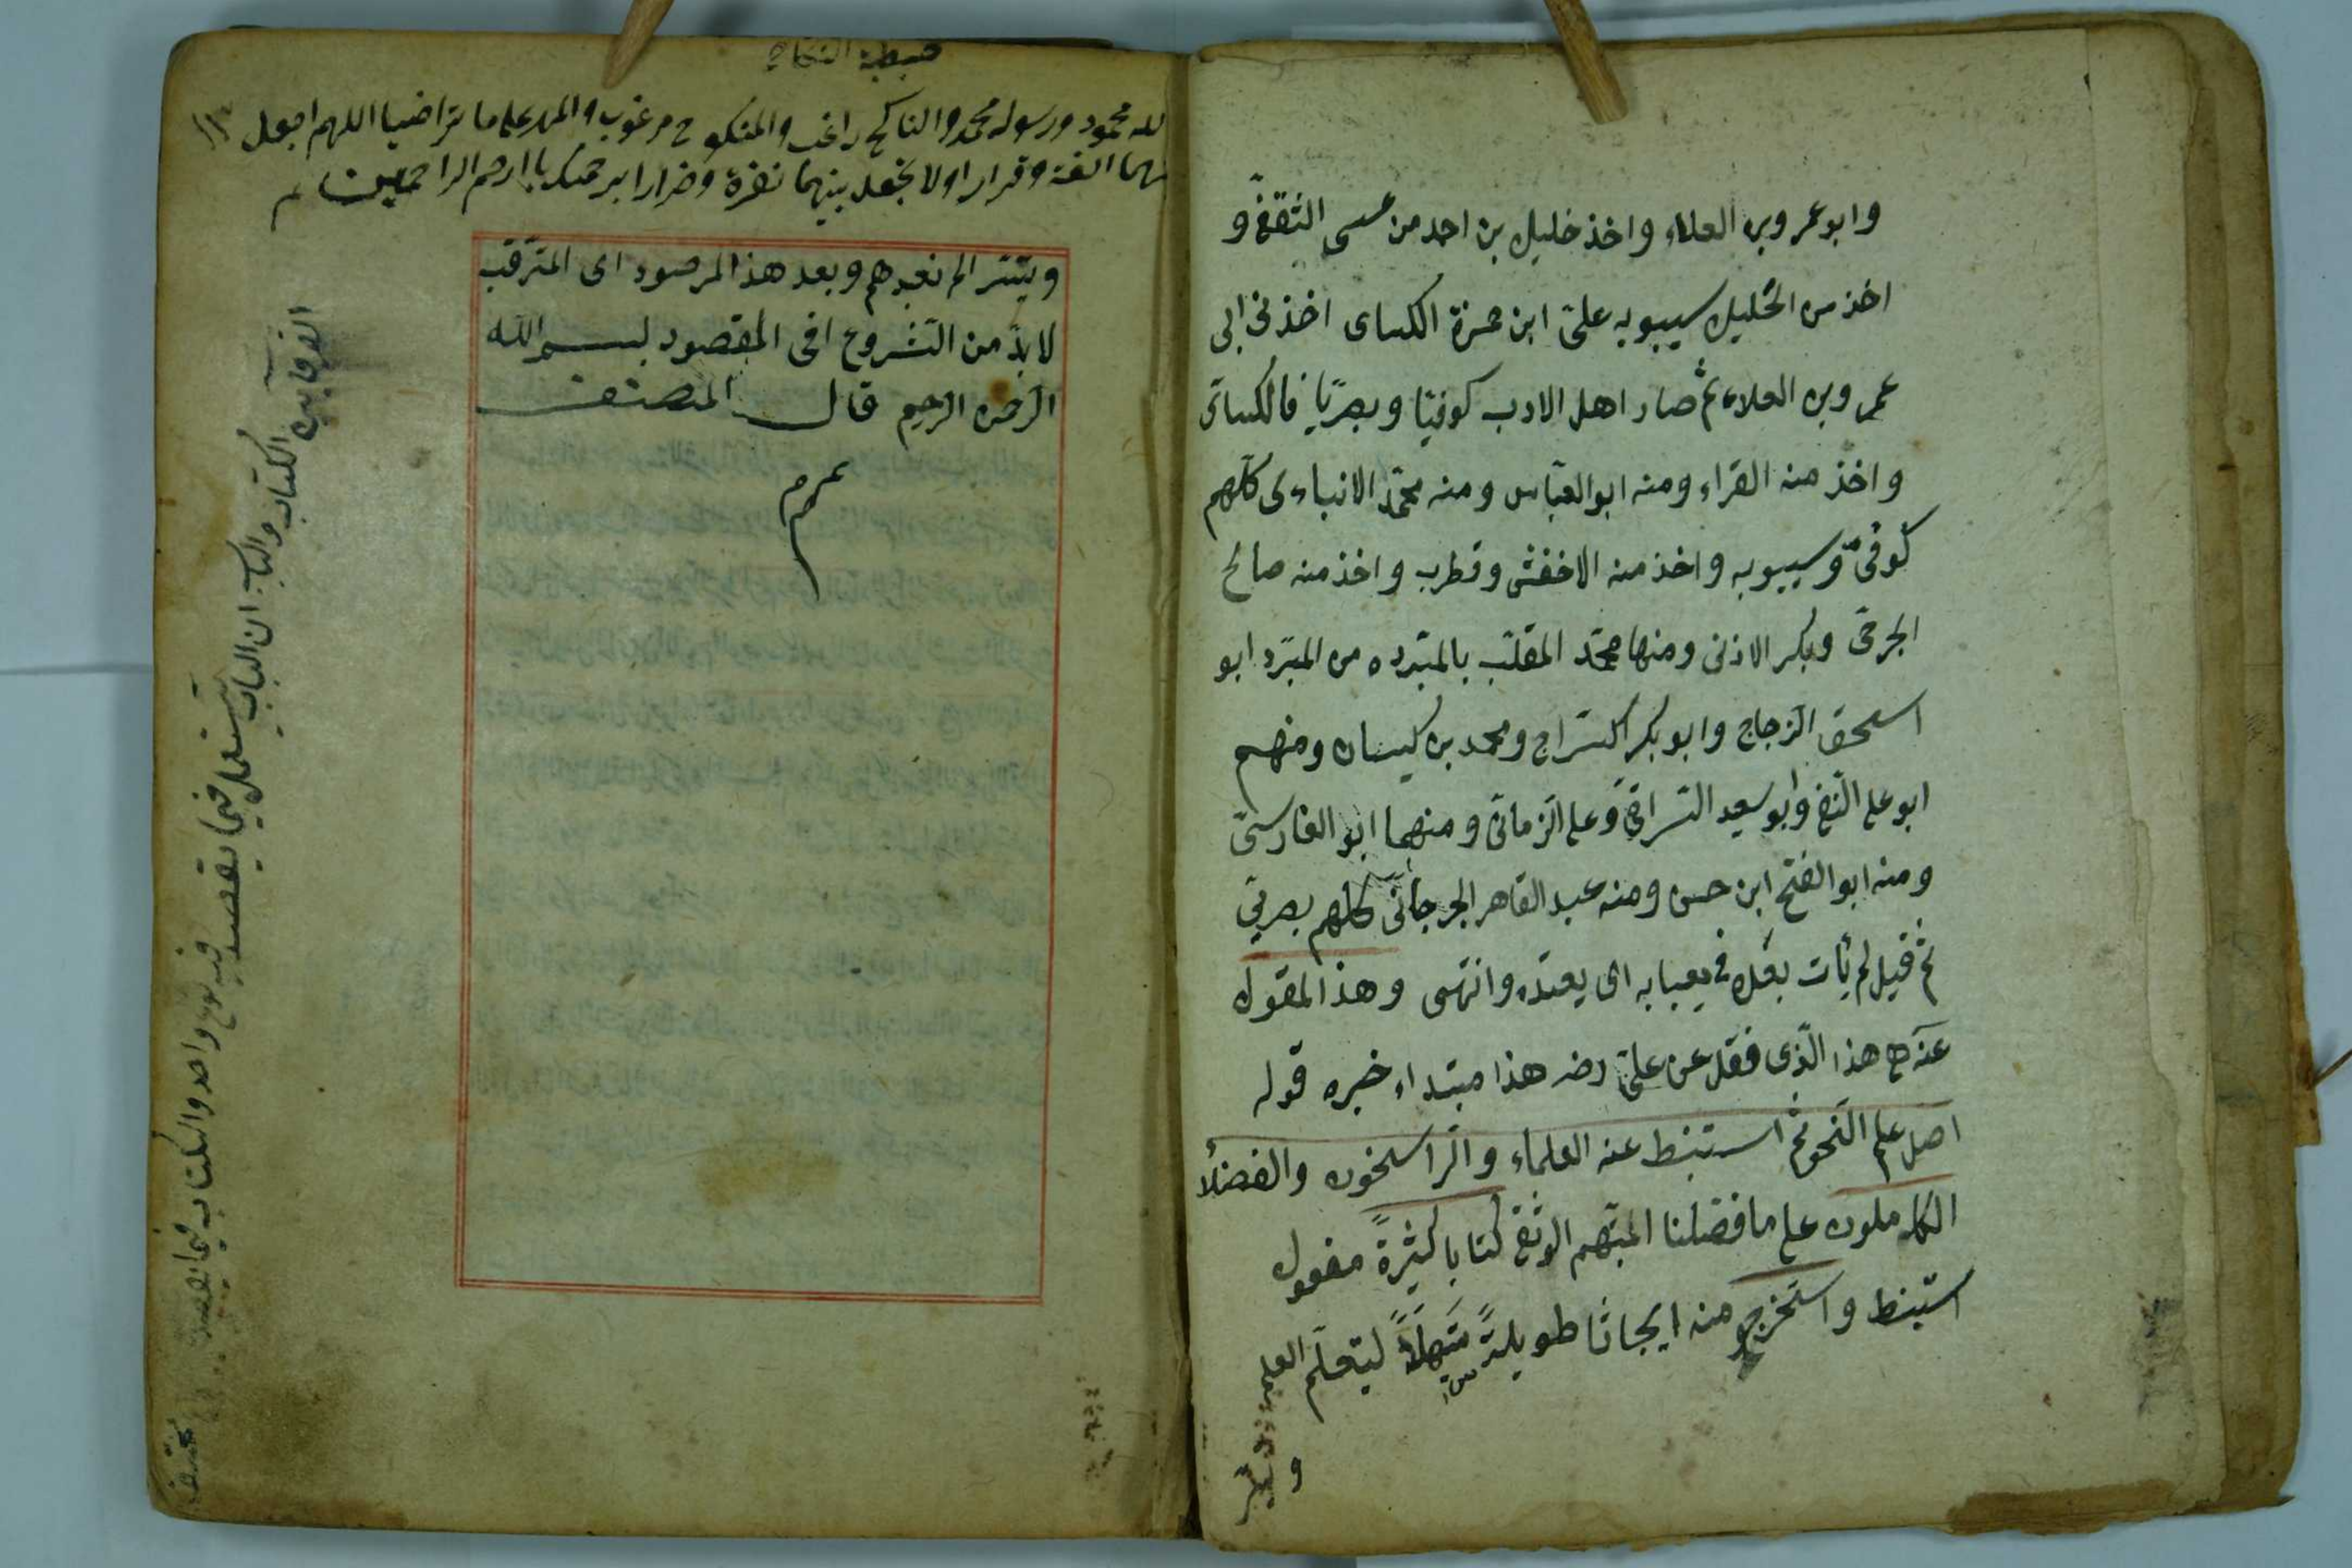 وابو عمر وبن العلاء واخذ خليل بن احمد من عسى الثقفى و
اخذ من الخليل سيبويه على ابن حمزة الكساى اخذ فى ابى
عمر وبن العلاء ثم صار اهل الادب كوفيا وبصريا فالكسائى
واخذ منه الفراء ومنه ابو العباس ومنه محمد الانباءى كلهم
كوفى وسيبويه واخذ منه الاخفش وقطرب واخذ منه صالح
الجرمى وبكر الاذنى ومنها محمد المقلب بالمبرد ه من المبرد ابو
اسحق الزجاج وابو بكر السراج ومحمد بن كيسان ومنهم
ابو على وابو سعيد السرافى وعلى الرمانى ومنهما ابو الفارسى
ومنه ابو الفتح ابن حسن ومنه عبد القاهر الجرجانى كلهم بصرى
ثم قيل لم يأت بعده يعبابه اى يعتده وانتهى وهذا المقول
هذا الذى فقل عن على رضه هذا مبتداء خبره قوله
اصل علم النحو ثم استنبط عنه العلماء والراسخون والفضلأ
الكاملون على ما فضلنا كتابا كثيرة مفعول
استنبط واستخرج منه ابحاثا طويلة سهلا ليتعلم العلم
و
خطبة النكاح
لله محمود ورسوله محمد والناكح راغب والمنكوح مرغوب والمهر على ما تراضيا اللهم اجعل
بينهما الفة وقرارا ولا تجعل بينهما نفرة وضرارا برحمتك يا ارحم الراحمين
ويتتر الم نعبدهم وبعد هذا المرصود اى المترقب
لابد من الشروع افى المقصود بسم الله
الرحمن الرحيم قال المصنف
الفرقا بين الكتاب والباب ان الباب يستعمل فيما يقصد فيه نوع واحد والكتاب فيما يقصد